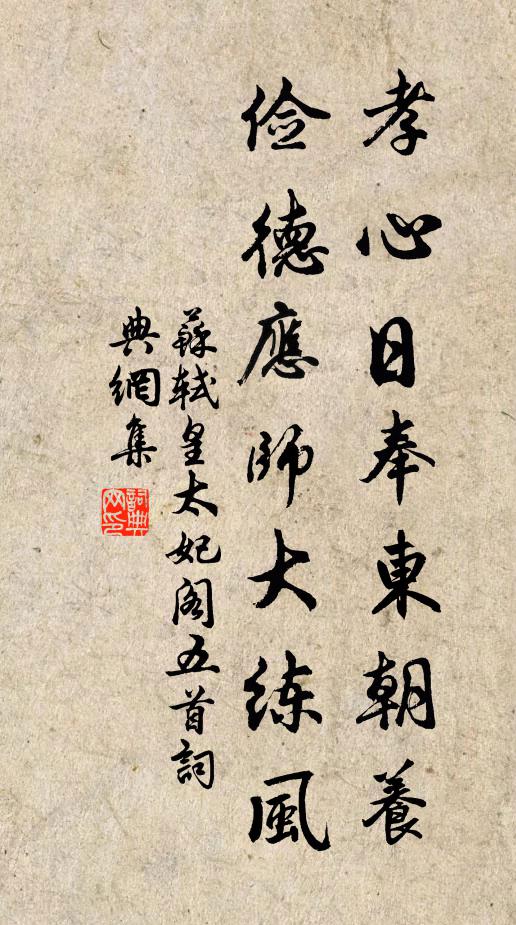 孝心日奉東朝養
儉德應師大練風
蘇軾皇太妃阁五首詞
典網集
詞典网印